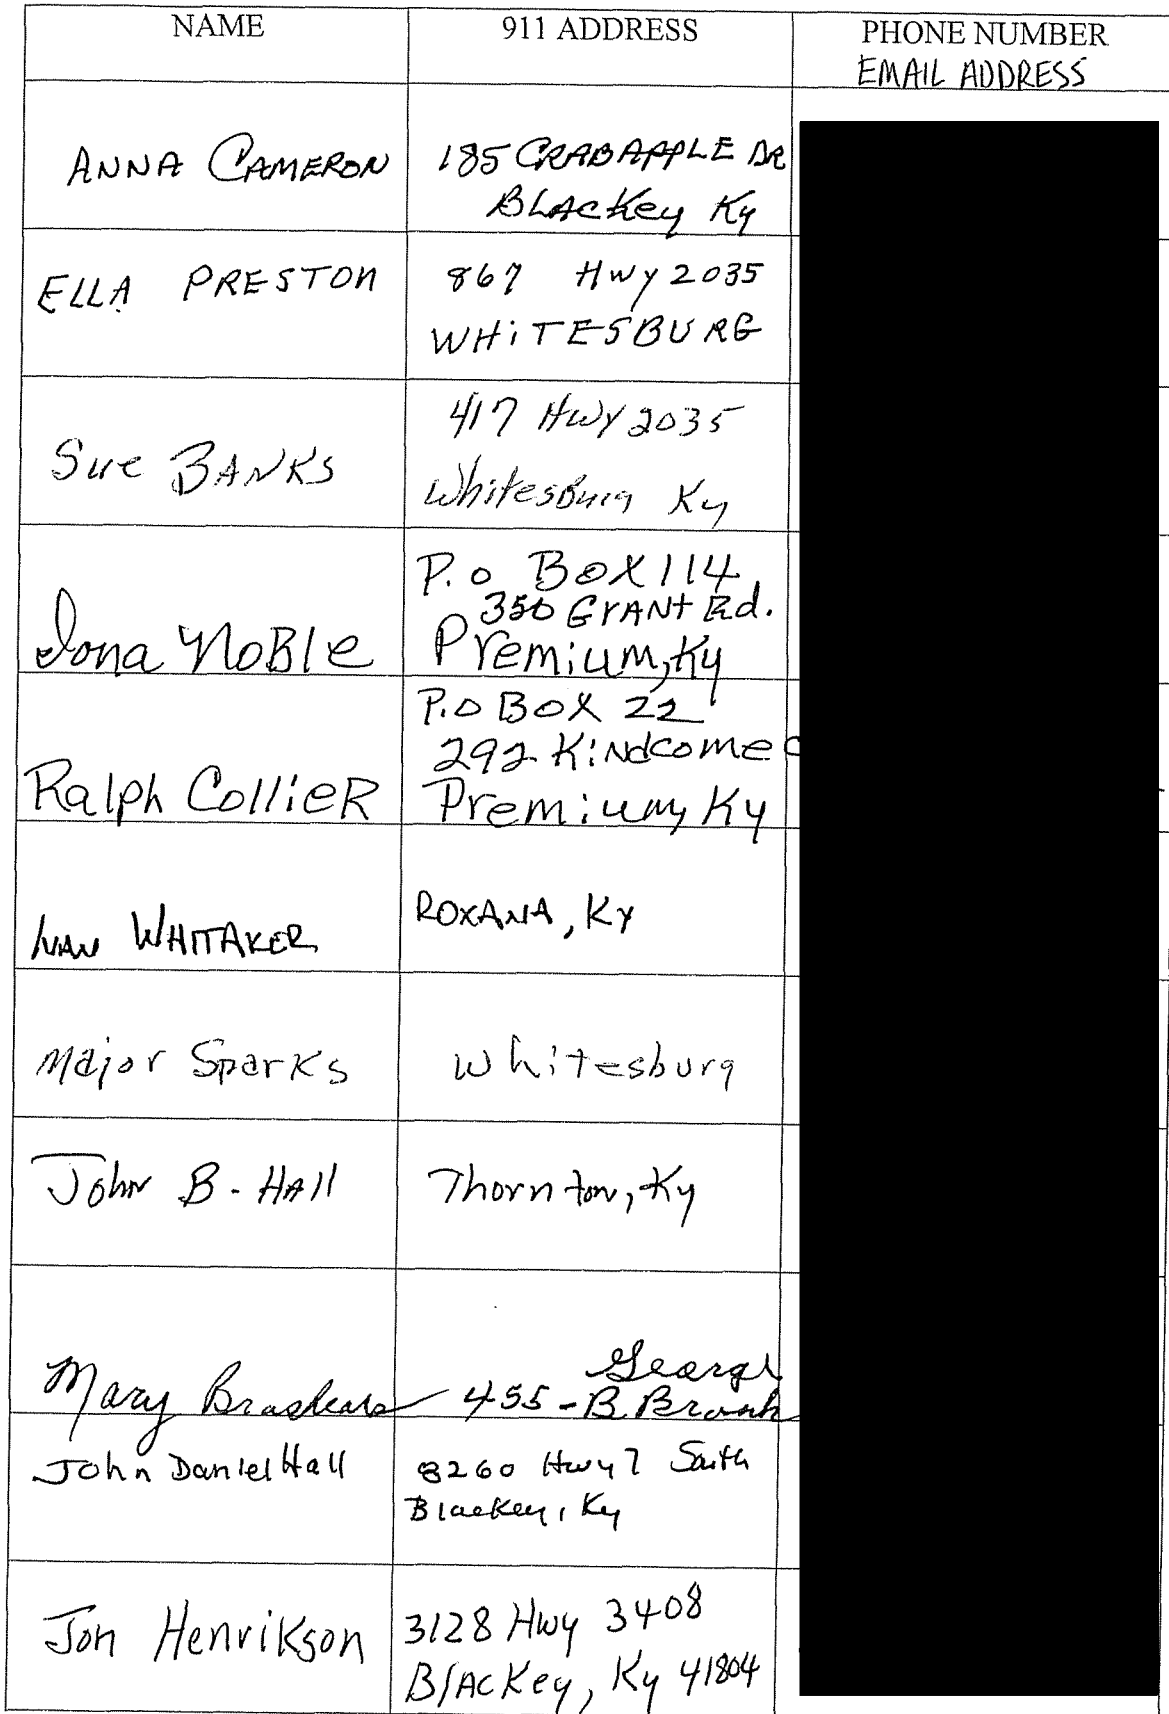 NAME 911 ADDRESS PHONE NUMBER
EMAIL ADDRESS
ANNA CAMERON 185 CRABAPPLE DR
BLACKey Ky
ELLA PRESTON 867 Hwy 2035
WHiTESBURG
Sue BANKS 417 HWY 2035
WhitesBurg Ky
P.o BOX 114
350 GrANt Rd.
Iona NoBle Premium, Ky
P.O BOX 22
292 KiNdcome C
Ralph CollieR Premium, Ky
IVAN WHITAKER ROXANA, Ky
Major Sparks Whitesburg
John B. HAll Thornton, Ky
George
Mary Brashears 455 - B. Branh
John Daniel Hall 8260 Hwy 7 South
Blackey, Ky
Jon Henrikson 3128 Hwy 3408
BlAcKey, Ky 41804